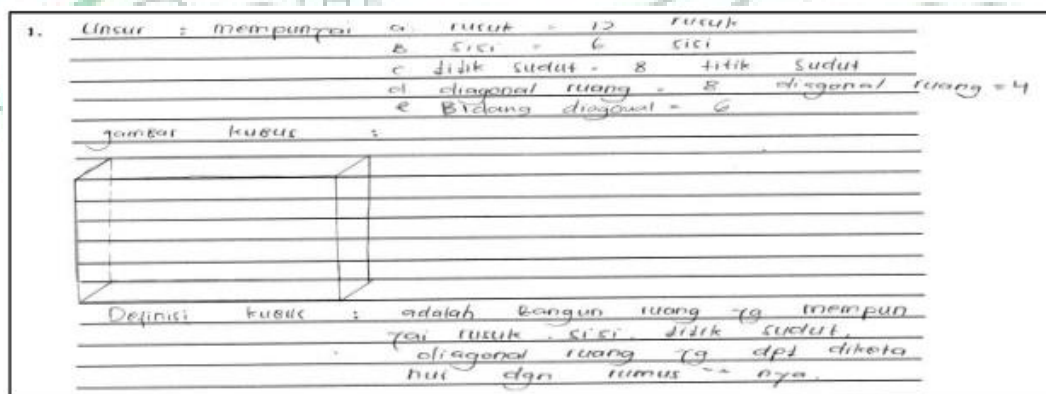 1. Unsur : mempunyai a. rusuk = 12 rusuk
B sisi = 6 sisi
c titik sudut = 8 titik sudut
d diagonal ruang = 8 diagonal ruang = 4
e Bidang diagonal = 6
gambar kubus :
Definisi kubus : adalah Bangun ruang yg mempun
yai rusuk, sisi, titik sudut,
diagonal ruang yg dpt diketa
hui dgn rumus "-nya.